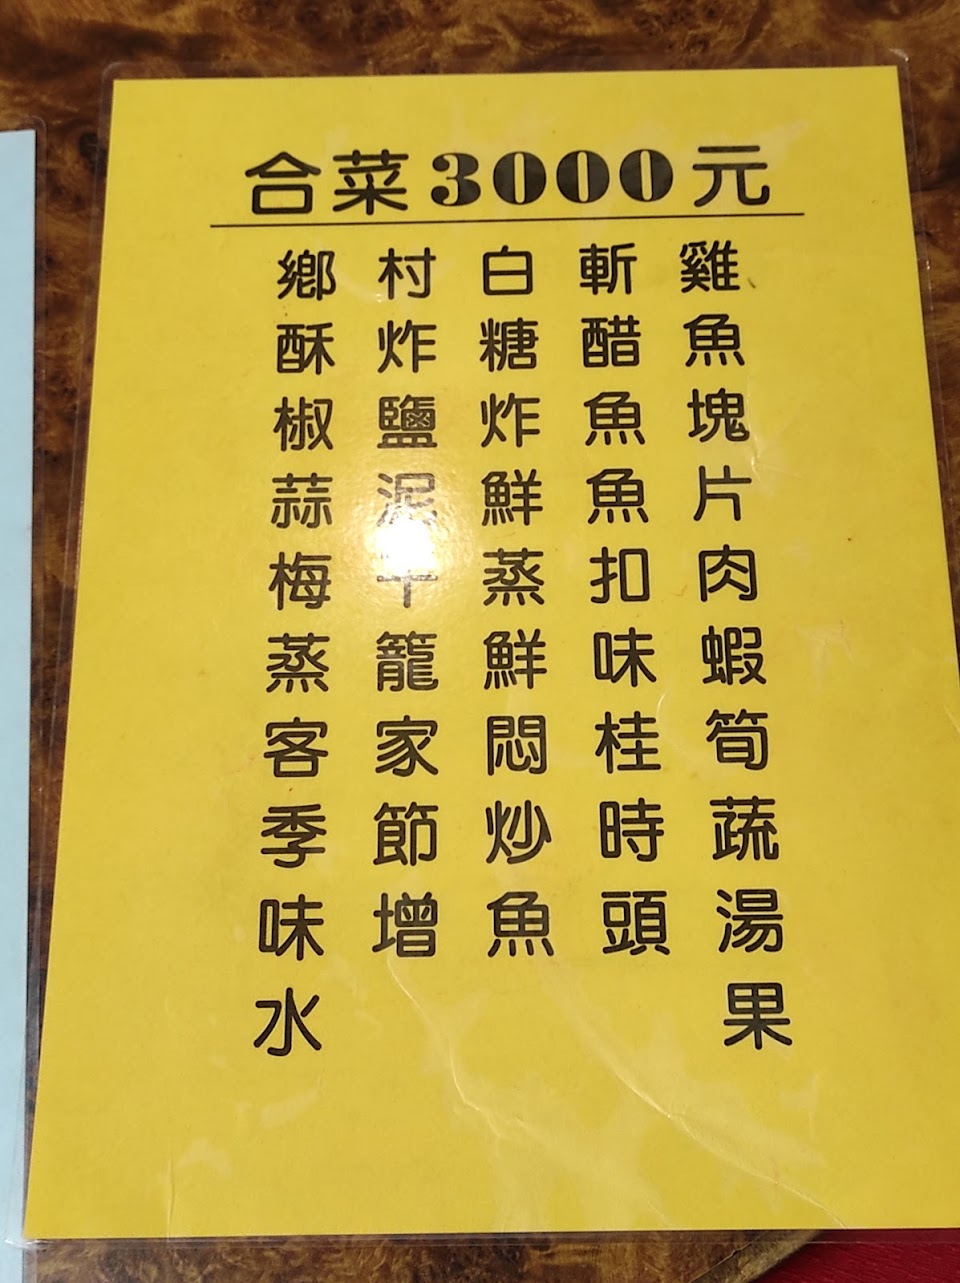 合菜3000元
鄉村白斬雞
酥炸糖醋魚
椒鹽炸魚塊
蒜泥鮮魚片
梅干蒸扣肉
蒸籠鮮味蝦
客家悶桂筍
季節炒時蔬
味增魚頭湯
水果